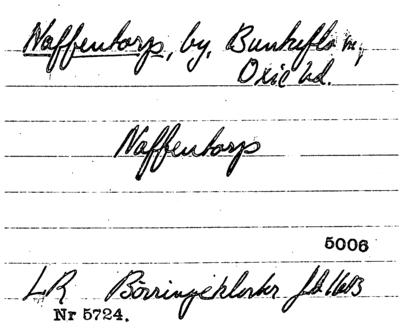 Naffentorp, by, Bunkeflo sn,
Oxie hd.
Naffentorp
5006
LR Börringekloster
Nr 5724.